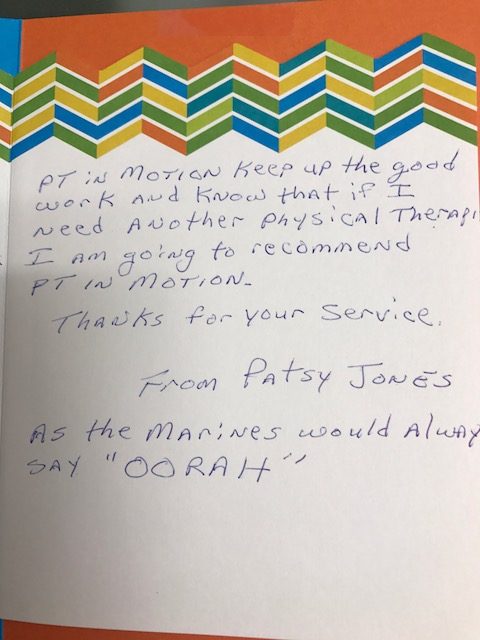 PT in Motion Keep up the good
work and know that if I
need another physical Therapi
I am going to recommend
PT in Motion.
Thanks for your service.
From Patsy Jones
As the Marines would alway
say "OORAH"